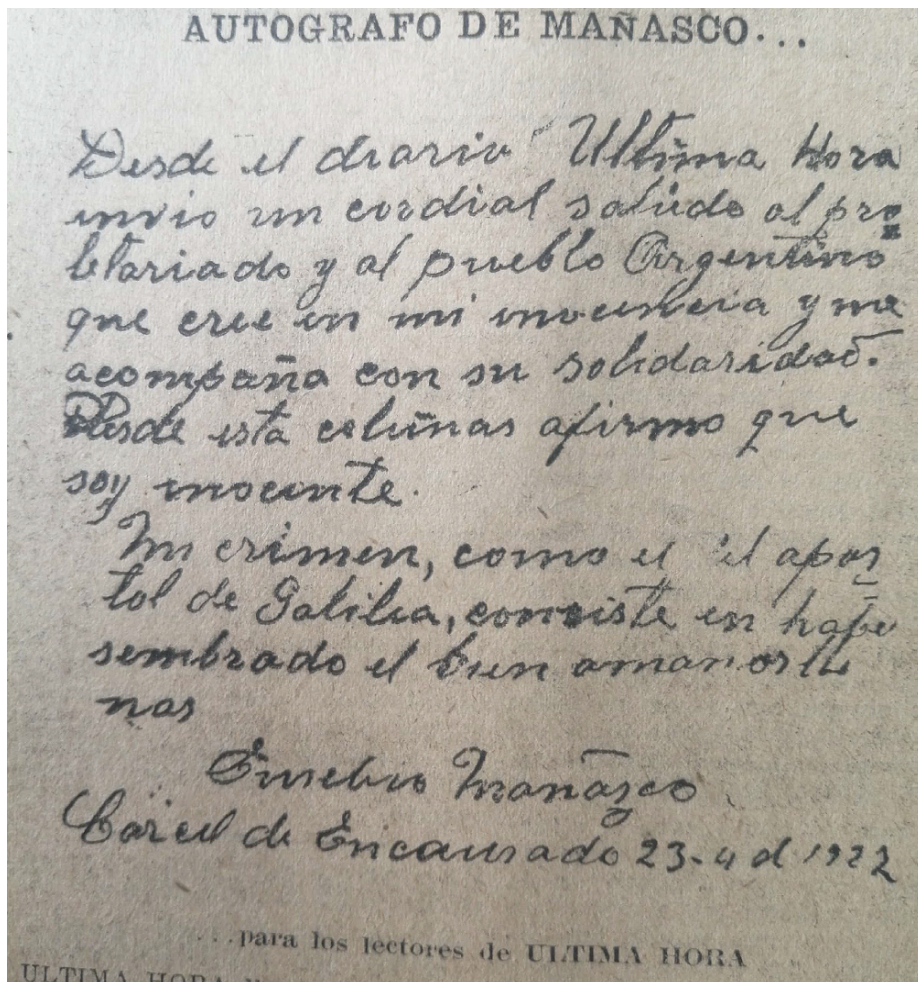 AUTOGRAFO DE MAÑASCO...
Desde el diario Ultima Hora
envio un cordial saludo al pro
letariado y al pueblo Argentino
que cree en mi inocencia y me
acompaña con su solidaridad.
Desde esta coluñas afirmo que
soy inocente.
Mi crimen, como el el apos
tol de Galilea, consiste en habe
sembrado el bien a manos lle
nas
Eusebio Mañasco
Carcel de Encausado 23-4 d 1922
...para los lectores de ULTIMA HORA
ULTIMA HORA